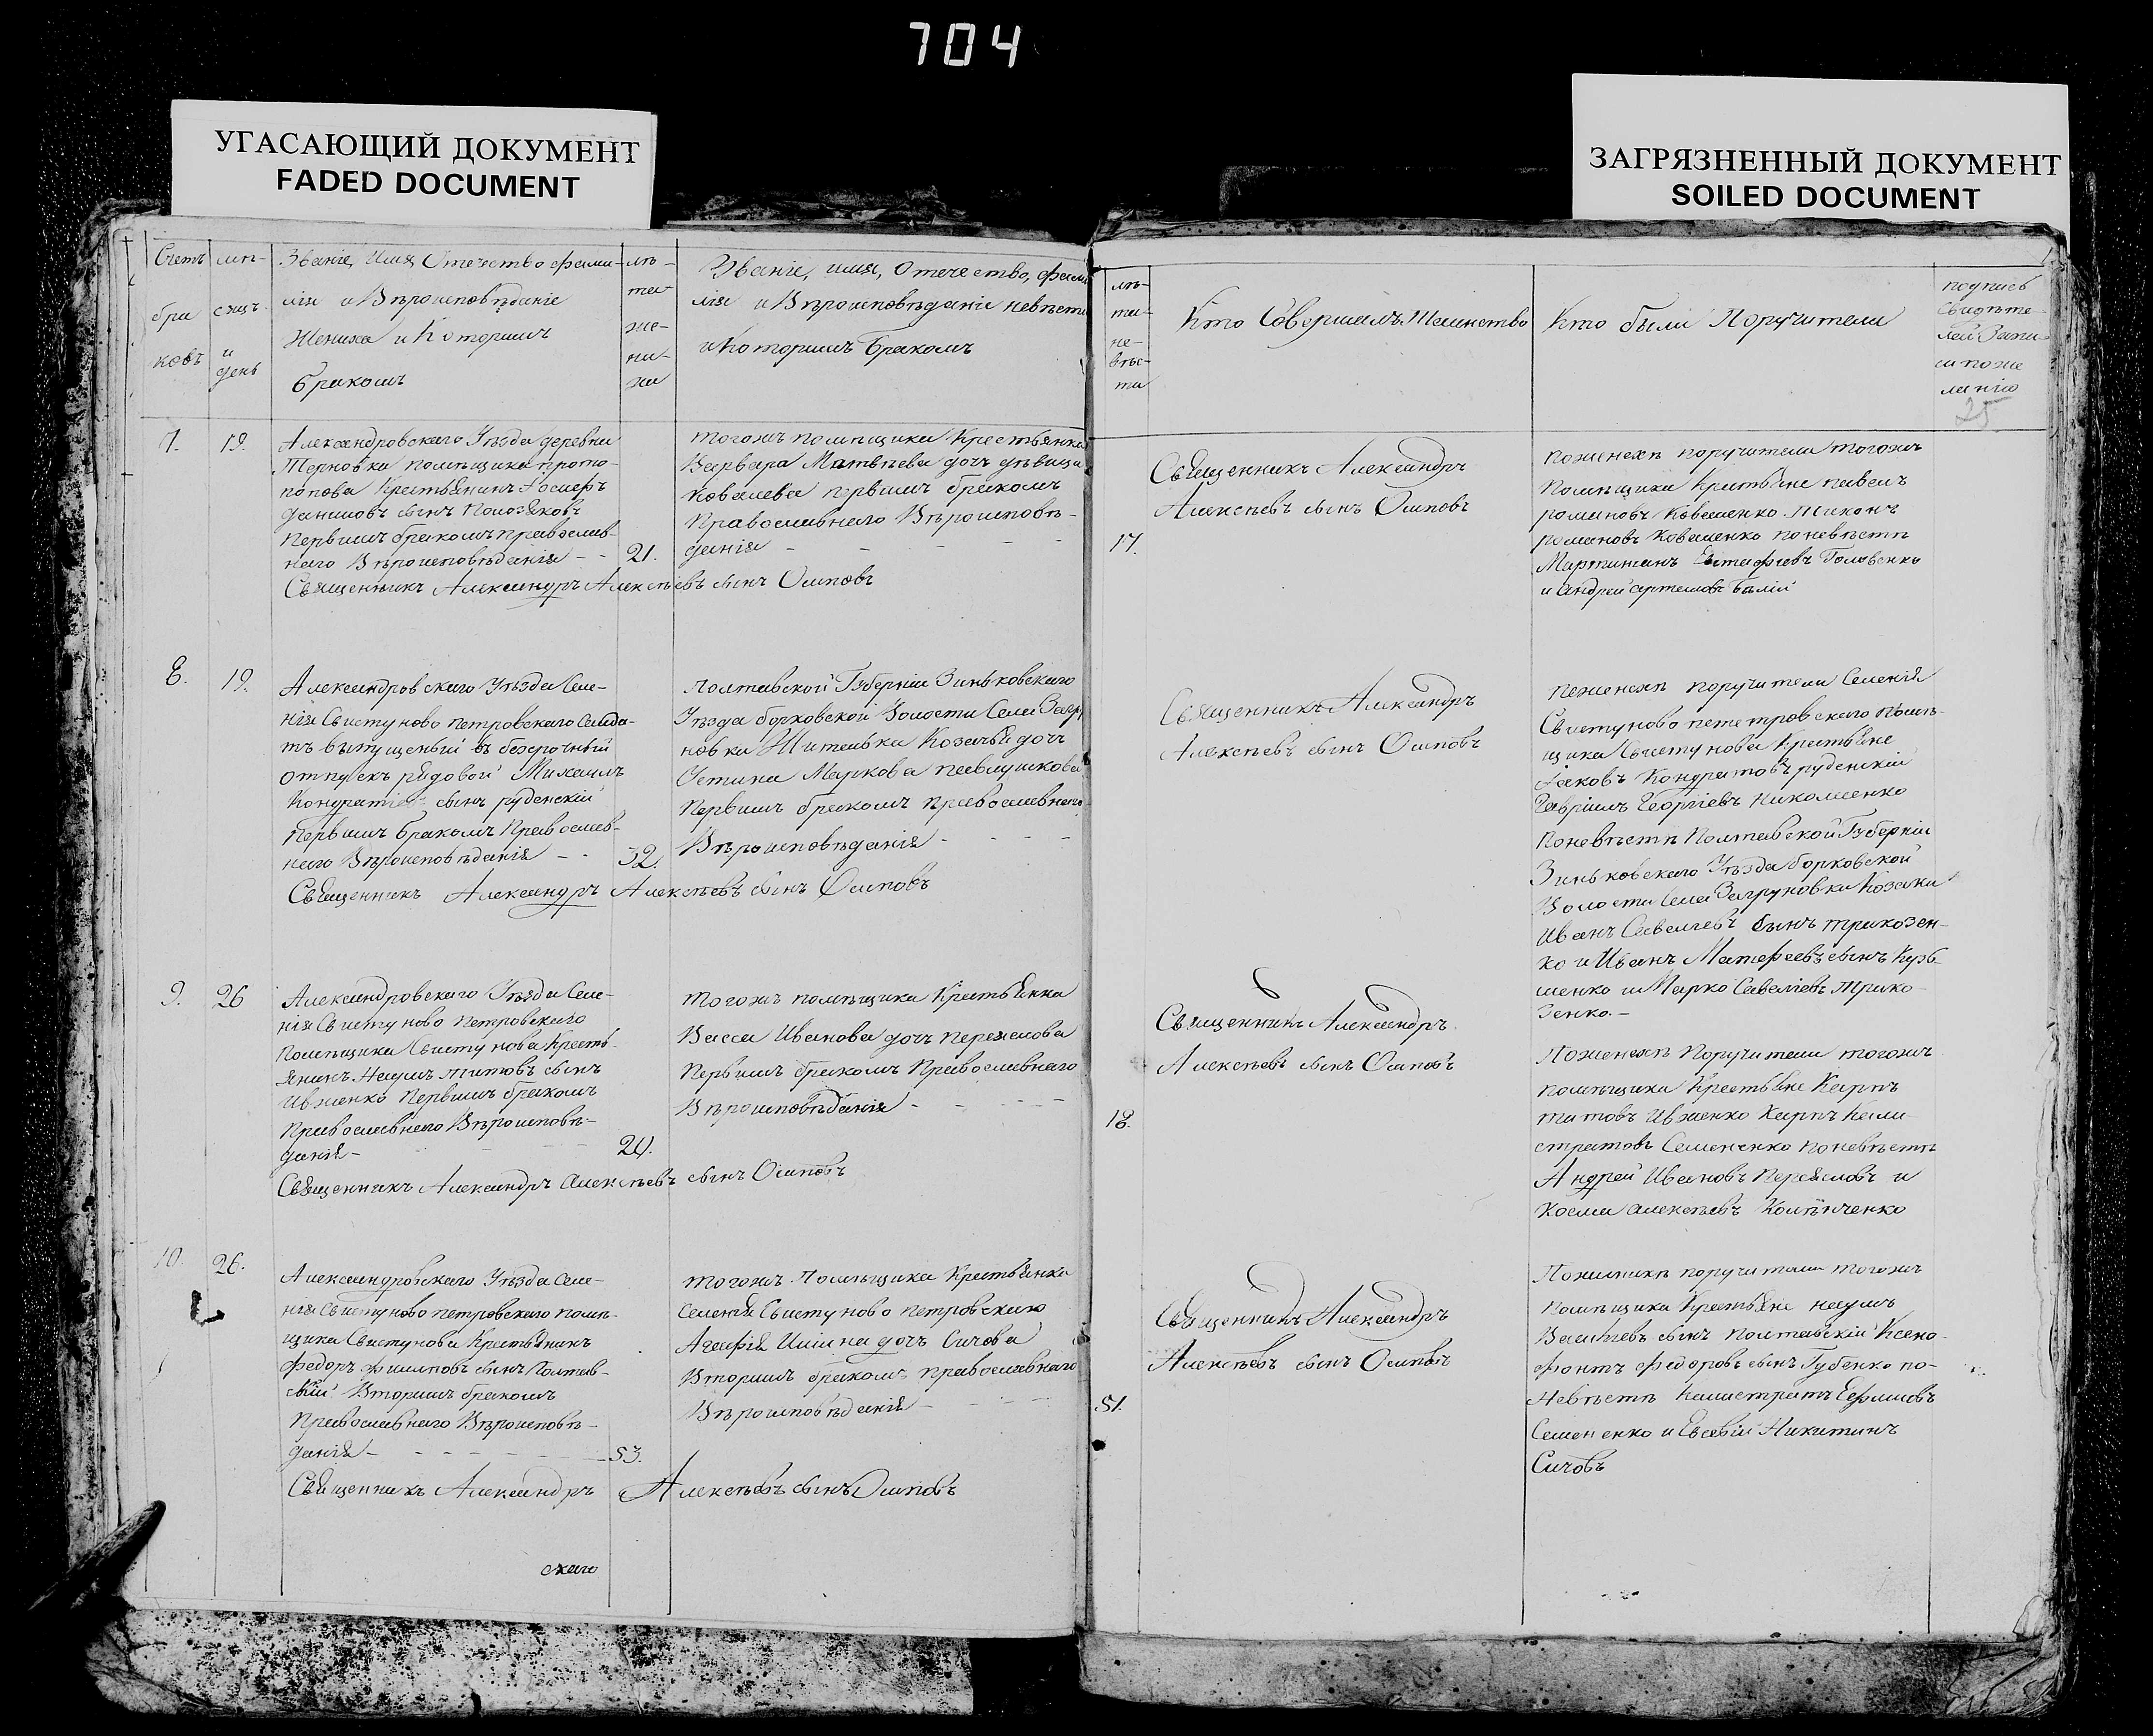 704
УГАСАЮЩИЙ ДОКУМЕНТ
FADED DOCUMENT
ЗАГРЯЗНЕННЫЙ ДОКУМЕНТ
SOILED DOCUMENT
Счетъ
бра
ковъ
мѣ-
сяцъ
и
день
Званіе, Имя, Отечество фами-
лія и Вѣроисповѣданіе
Жениха и Которымъ
бракомъ
лѣ-
та
же-
ни-
ха
Званіе, имя, Отечество, фами
лія и Вѣроисповѣданіе невѣсти
и Которымъ бракомъ
лѣ-
та-
не-
вѣс-
ти
Кто Совершалъ Таинство
Кто были Поручители
подпись
Свидѣте-
лей Запи-
си по же
ланію
25
7.
19.
Александровскаго Уѣзда деревни
Терновка помѣщика прото-
попова Крестьянинъ
Даниловъ сынъ
Первымъ бракомъ православ-
наго Вѣроисповѣданія - -
21.
Священникъ Александръ Алексѣевъ сынъ Осиповъ
тогожъ помѣщика Крестьянка
Варвара Матвѣева дочь дѣвица
Ковалева первымъ бракомъ
Православнаго Вѣроисповѣ-
данія - - - - -
17.
Священникъ Александръ
Алексѣевъ сынъ Осиповъ
Поженихѣ поручители тогожъ
Помѣщика Крестьяне павелъ
романовъ Коваленко Тихонъ
романовъ Коваленко поневѣстѣ
Мартинъянъ Головенко
и андрей артемовъ Балій
8.
19.
Александровскаго Уѣзда Селе-
нія Свистуново петровскаго Солда-
тъ выпущеный въ безсрочный
отпускъ рядовой Михаилъ
Кондратіевъ сынъ руденскій
Первымъ бракомъ Православ-
наго Вѣроисповѣданія - -
32.
Священникъ Александръ Алексѣевъ сынъ Осиповъ
Полтавской Губерніи Зиньковскаго
Уѣзда борковской Волости Села Загру
новка Жителька Козачья дочь
Устина Маркова павлушкова
Первымъ бракомъ православнаго
Вѣроисповѣданія - - - -
Священникъ Александръ
Алексѣевъ сынъ Осиповъ
Поженихѣ поручители Селенія
Свистуново пететровского помѣ-
щика Свистунова Крестьяне
Іаковъ Кондратовъ руденскій
Гавріилъ Георгіевъ Николаенко
Поневѣстѣ Полтавской Губерніи
Зиньковскаго Уѣзда борковской
Волости Села Загруновки Козаки
Иванъ Савеліевъ сынъ трикозен-
ко и Иванъ Матфеевъ сынъ Кузь-
менко и Марко Савеліевъ Трико-
зенко. -
9.
26
Александровскаго Уѣзда Селе-
нія Свистуново Петровскаго
Помѣщика Свистунова Кресть-
янинъ Наумъ титовъ сынъ
Ивженко Первымъ бракомъ
Православнаго Вѣроисповѣ-
данія - - - -
20.
Священникъ Александръ Алексѣевъ сынъ Осиповъ
Тогожъ помѣщика Крестьянка
Васса Иванова дочь
Первымъ бракомъ Православнаго
Вѣроисповѣданія - - - -
18.
Священникъ Александръ
Алексѣевъ сынъ Осиповъ
Поженихѣ Поручители тогожъ
помѣщика Крестьяне Карпъ
титовъ Ивженко Карпъ Кали-
стратовъ Семененко Поневѣстѣ
Андрей Ивановъ и
Косма алексѣевъ
10.
26.
Александровскаго Уѣзда Селе-
нія Свистуново петровскаго помѣ-
щика Свистунова Крестьянинъ
федоръ филиповъ сынъ Полтав-
скій Вторымъ бракомъ
Православнаго Вѣроисповѣ-
данія - - - - -
53.
Священникъ Александръ Алексѣевъ сынъ Осиповъ
тогожъ Помѣщика Крестьянка
Селенія Свистуново петровскаго
Агафія дочь Сичова
Вторымъ бракомъ православнаго
Вѣроисповѣданія - - -
51.
Священникъ Александръ
Алексѣевъ сынъ Осиповъ
Поженихѣ поручители тогожъ
помѣщика Крестьяне наумъ
Васильевъ сынъ Полтавскій Ксено-
фонтъ федоровъ сынъ Губенко по-
невѣстѣ Калистратъ Ефимовъ
Семененко и Евсевій Никитинъ
Сичовъ
скаго